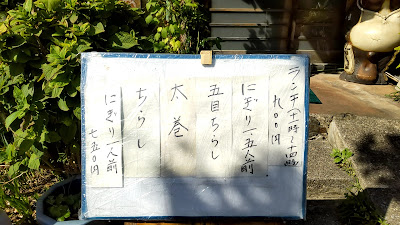 ランチ(十一時〜十四時)
九〇〇円
にぎり一・五人前
五目ちらし
太巻
ちらし
にぎり一人前
七五〇円